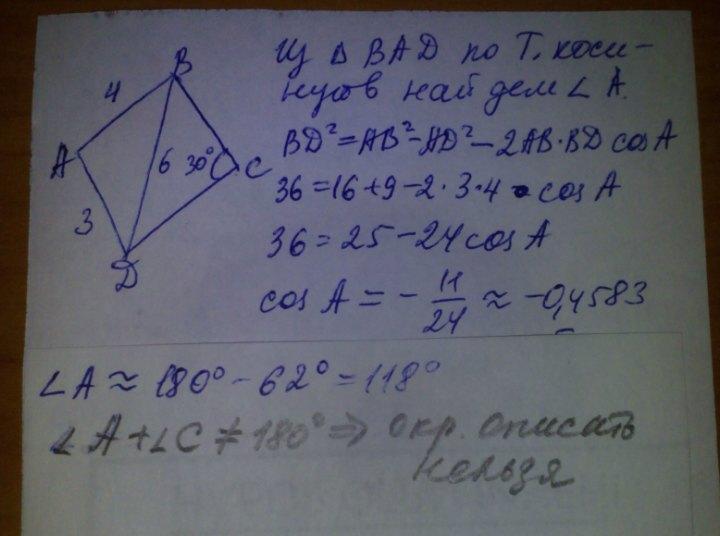 B
4
A
6
30°
C
3
D
Из Δ BAD по Т. коси-
нусов найдем ∠ A.
BD²=AB²-AD²-2AB·BD cos A
36=16+9-2·3·4·cos A
36=25-24cos A
cos A = - 11/24 ≈ -0,4583
∠A ≈ 180° - 62° = 118°
∠A+∠C≠180° ⇒ окр. описать
нельзя